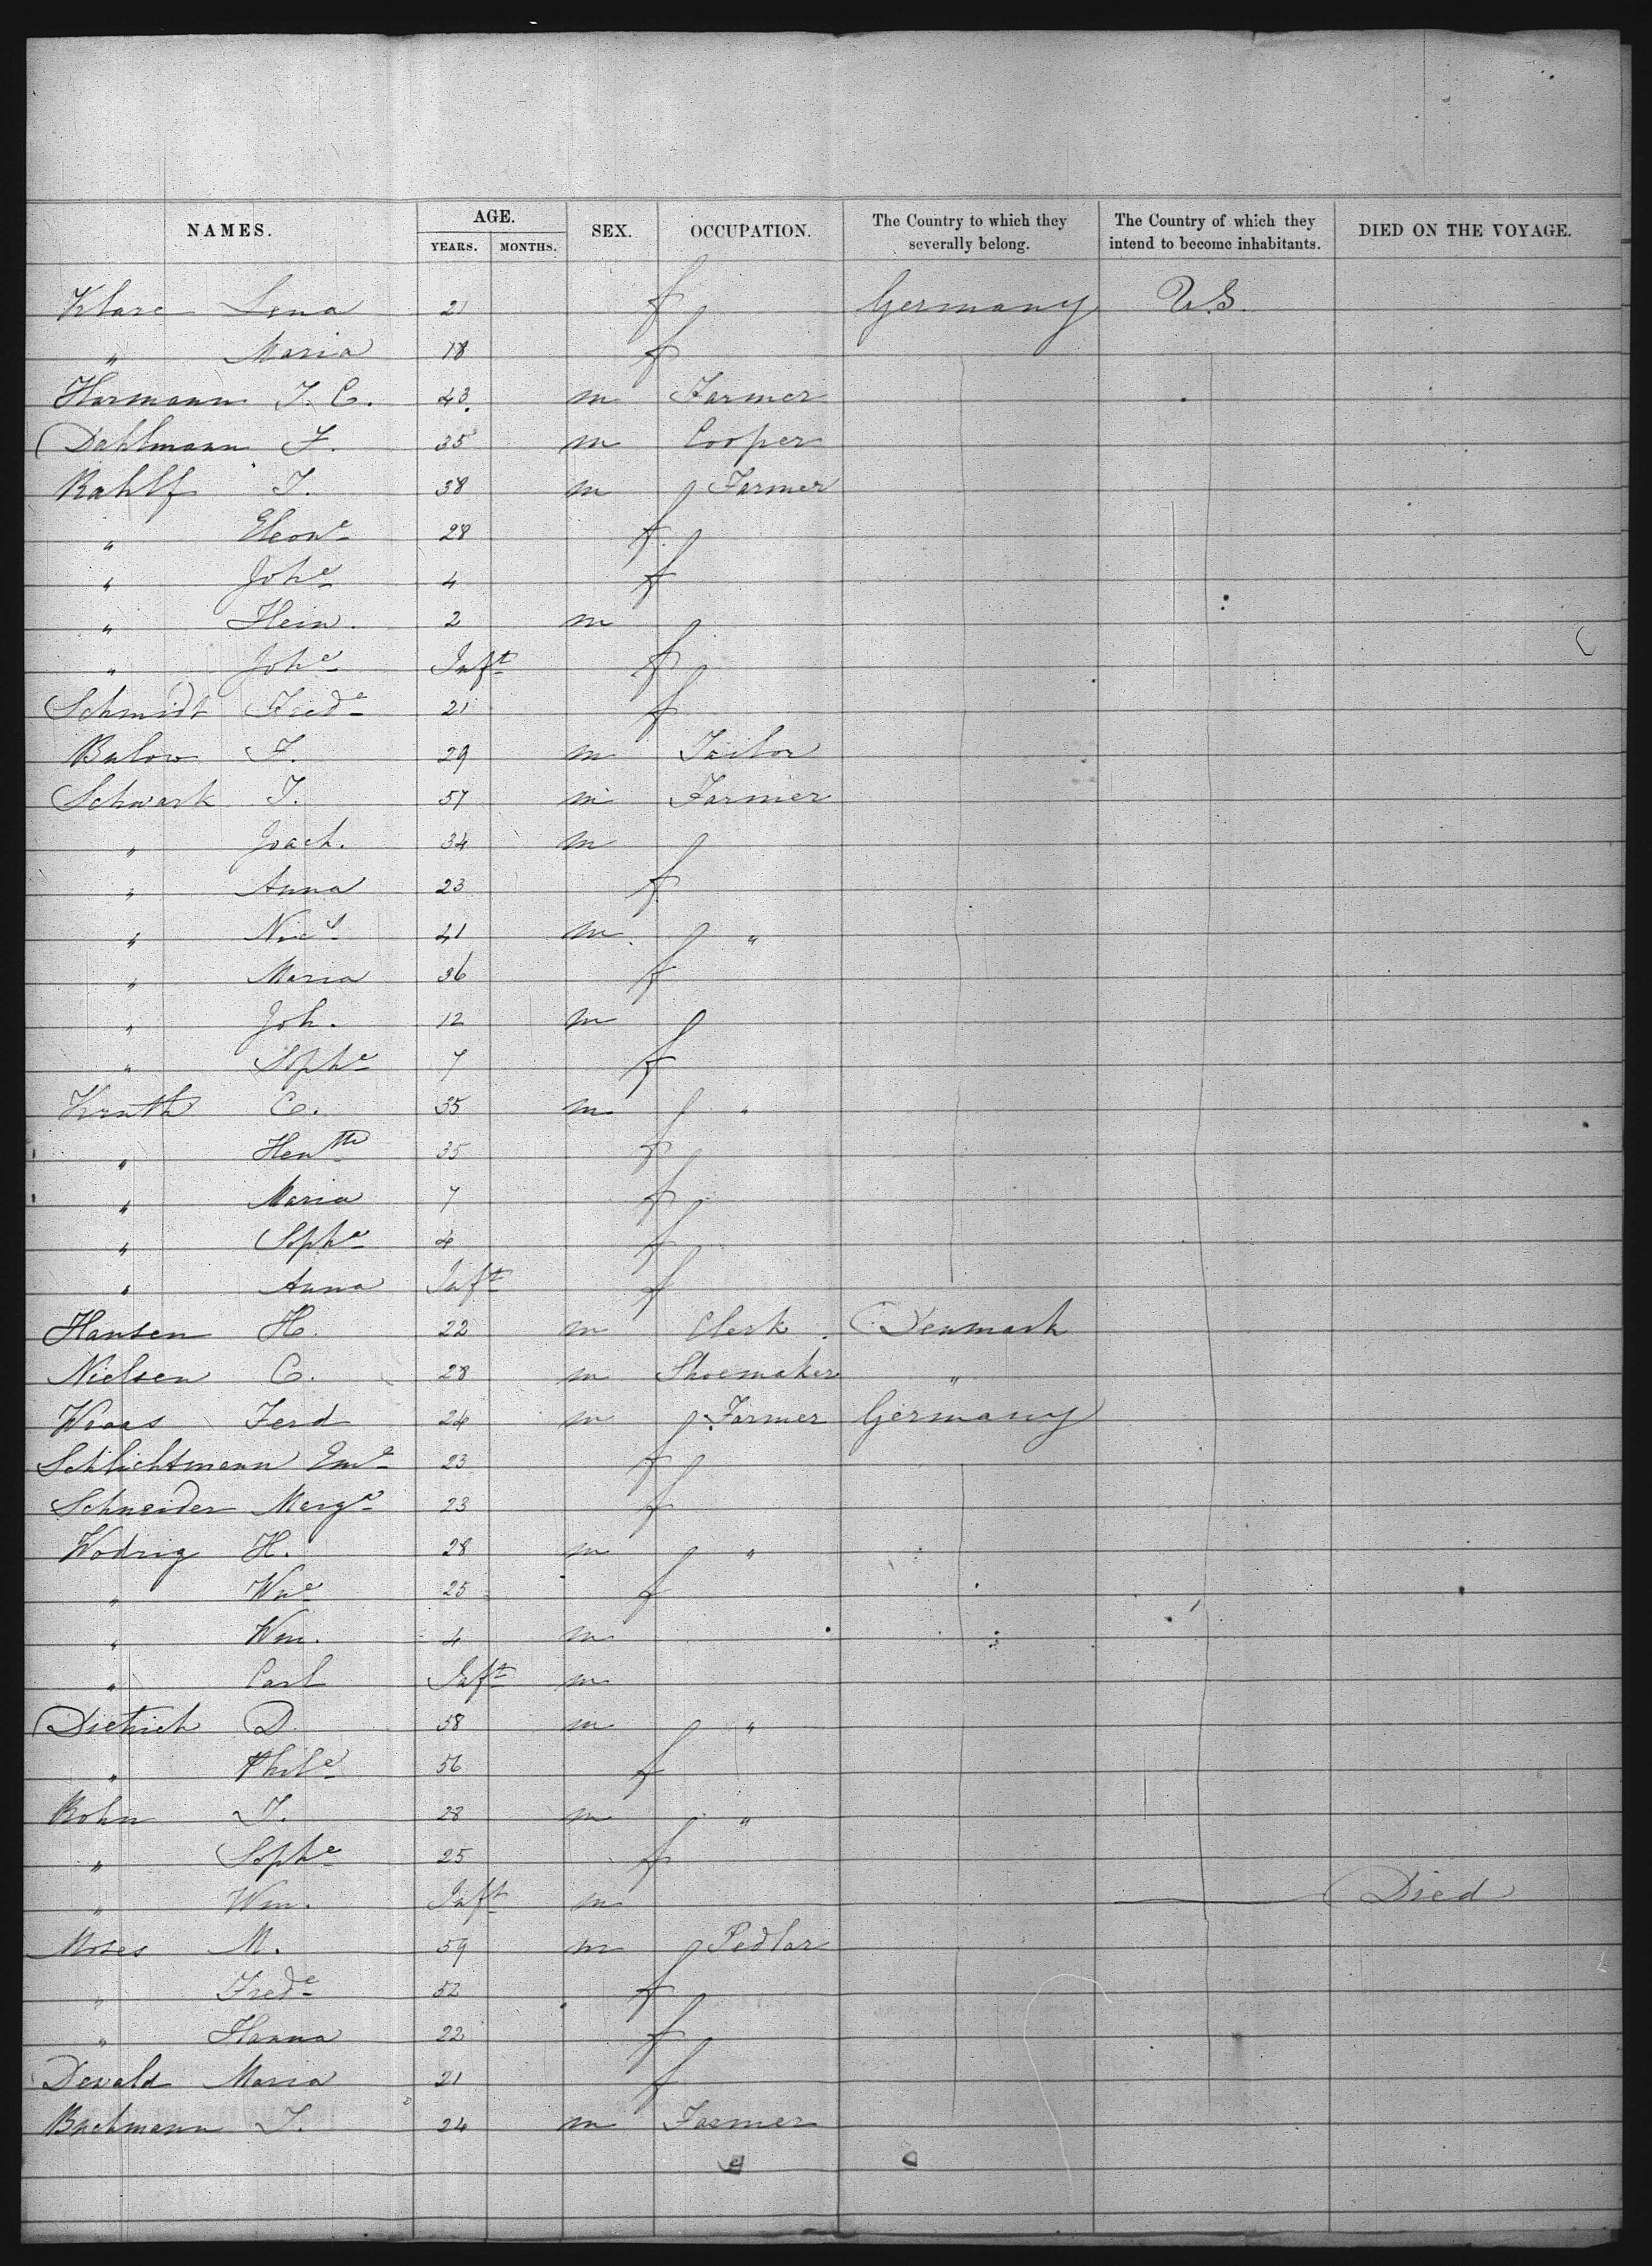 NAMES. AGE. SEX. OCCUPATION. The Country to which they severally belong. The Country of which they intend to become inhabitants. DIED ON THE VOYAGE.
YEARS. MONTHS.
Klare Lena 21 f Germany U.S.
" Maria 18 f
Harmann J. C. 43 m Farmer
Dahlmann F. 35 m Cooper
Rahlf J. 38 m Farmer
" Eleone 28 f
" Johe 4 f
" Hein. 2 m
" Johe Inft f
Schmidt Frede 21 f
Bulow F. 29 m Tailor
Schwark J. 57 m Farmer
" Joach. 34 m
" Anna 23 f
" Nics 41 m "
" Maria 36 f
" Joh. 12 m
" Sophe 7 f
Knuth C. 35 m "
" Hentte 35 f
" Maria 7 f
" Sophe 4 f
" Anna Inft f
Hansen H. 22 m Clerk Denmark
Nielsen C. 28 m Shoemaker "
Waas Ferd 24 m Farmer Germany
Schlichtmann Eme 23 f
Schneider Marge 23 f
Wodrig H. 28 m "
" Wne 25 f
" Wm. 4 m
" Carl Inft m
Dietrich D. 58 m "
" Phile 56 f
Bohn J. 28 m "
" Sophe 25 f
" Wm. Inft m Died
Moses M. 59 m Pedlar
" Frede 52 f
" Hanna 22 f
Devald Maria 21 f
Buchmann J. 24 m Farmer